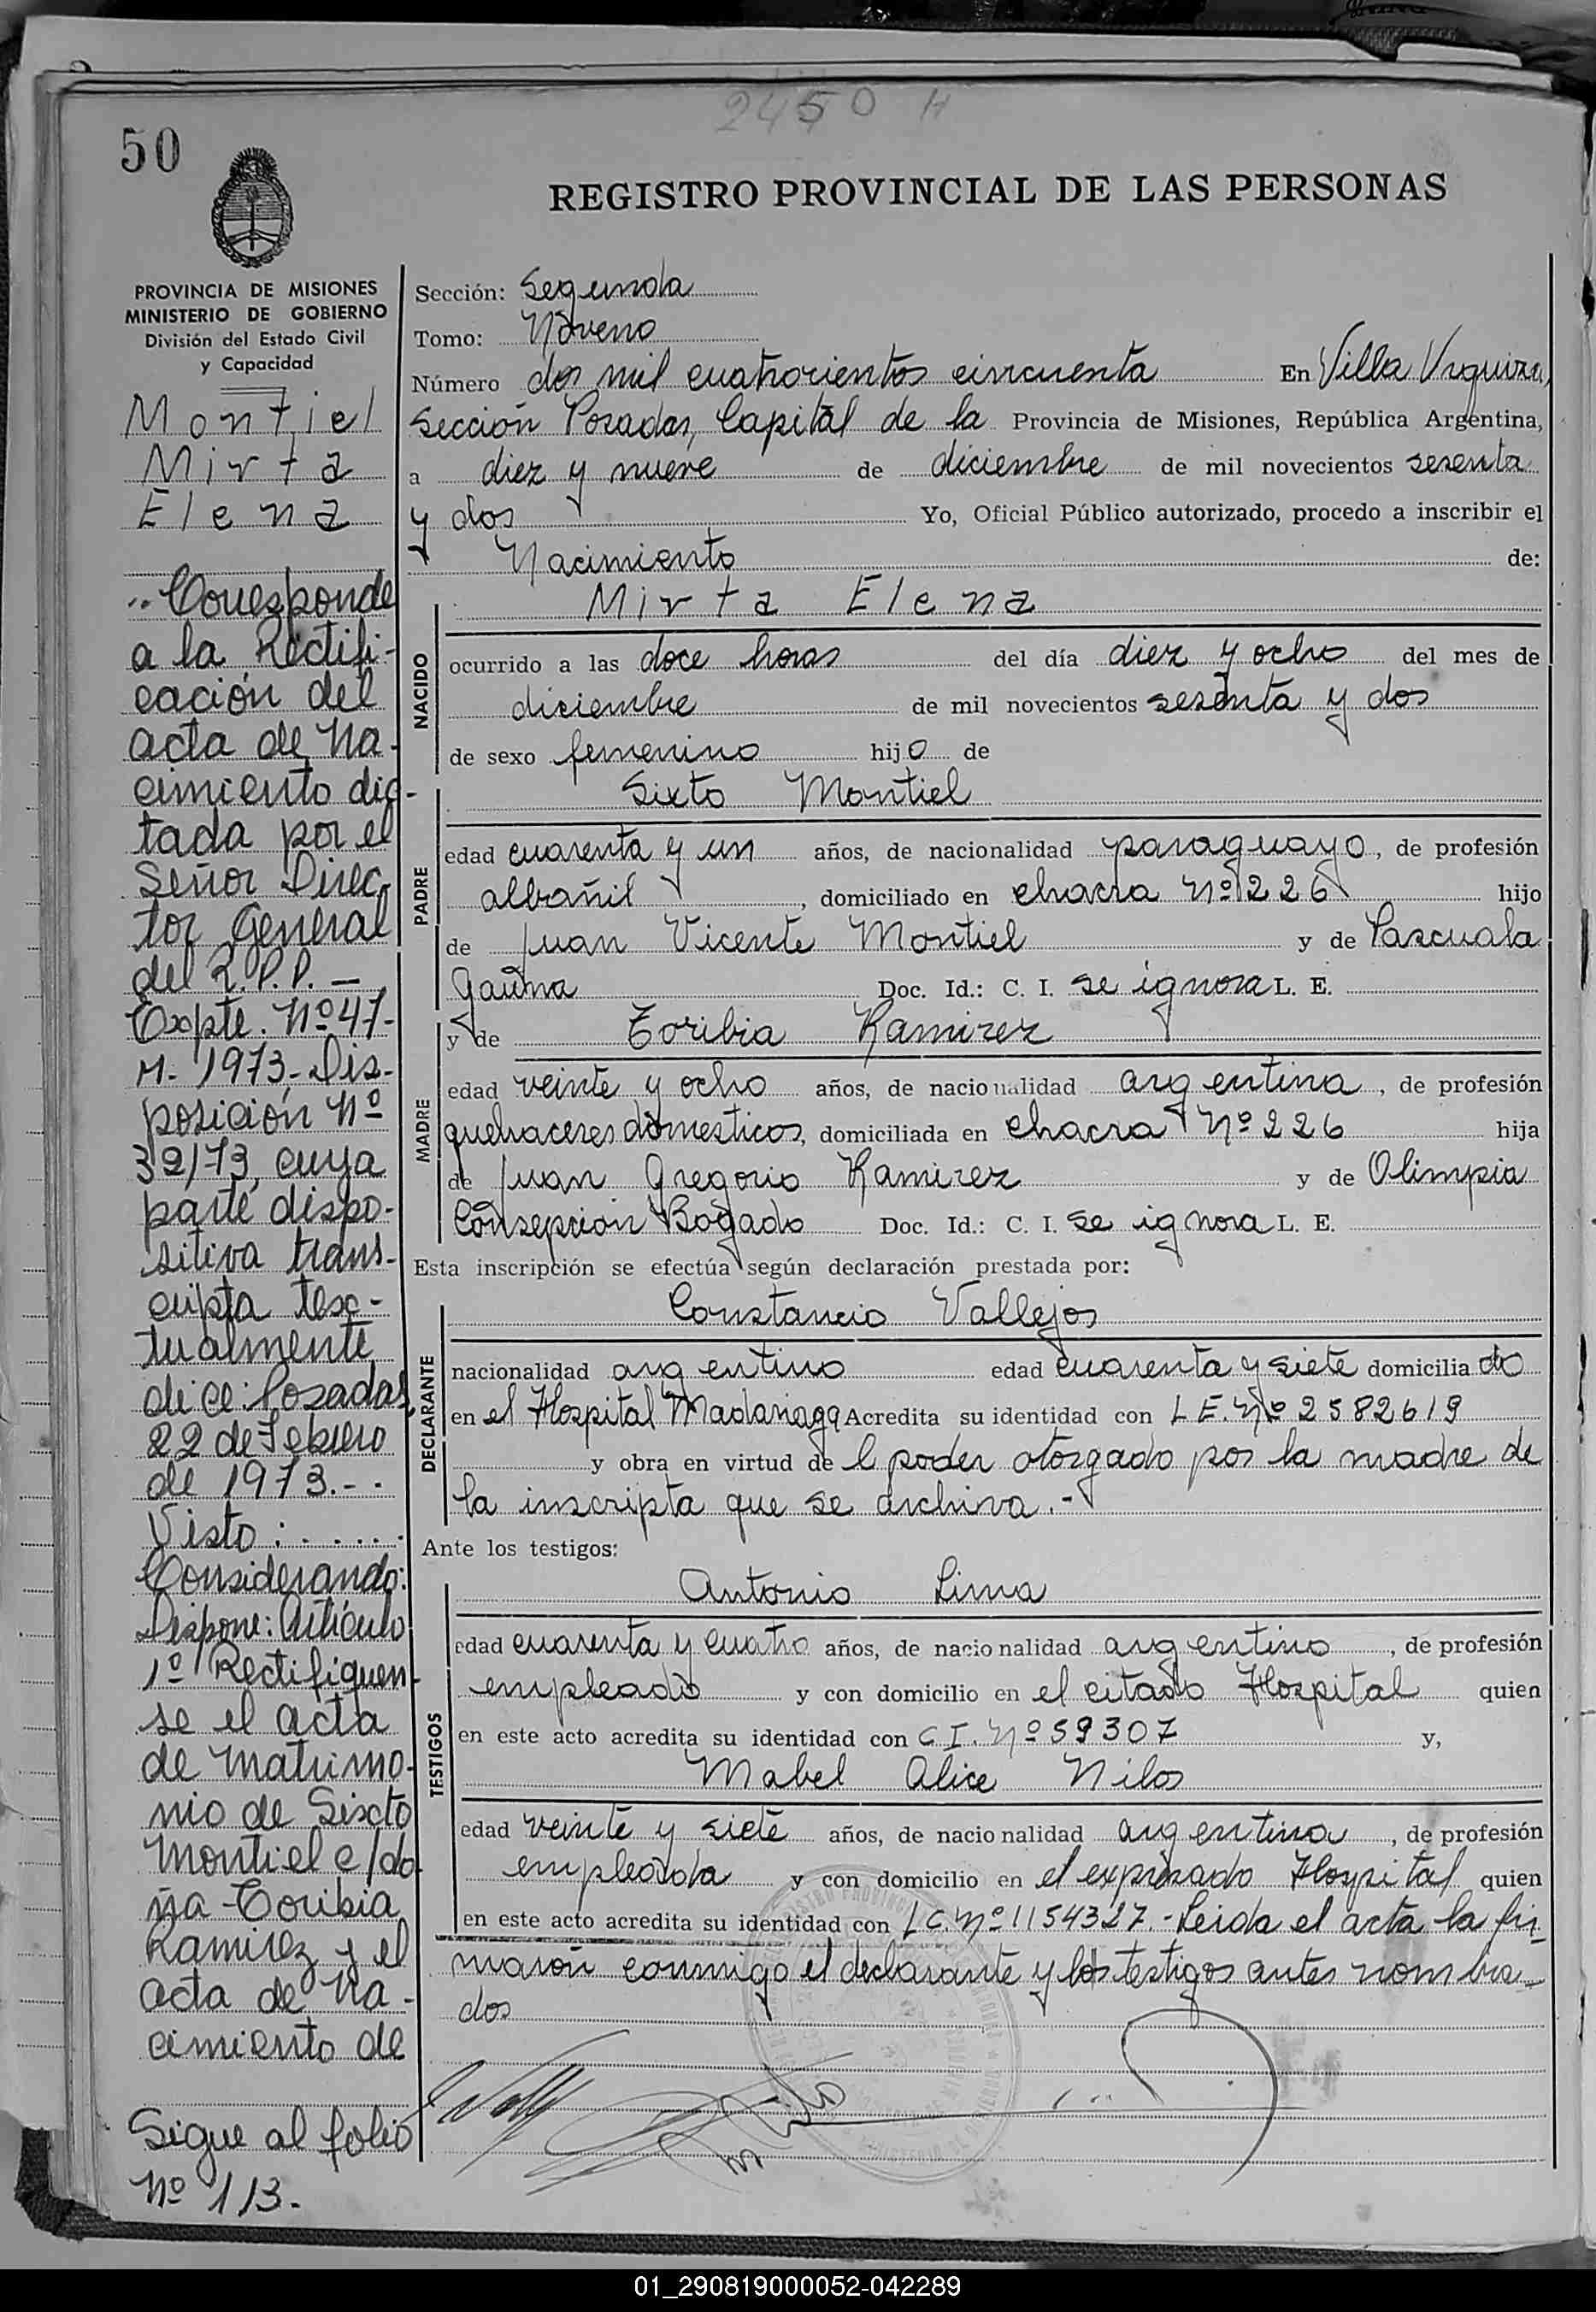 2450 H
50
REGISTRO PROVINCIAL DE LAS PERSONAS
PROVINCIA DE MISIONES
MINISTERIO DE GOBIERNO
División del Estado Civil
y Capacidad
Montiel
Mirta
Elena
.. Corresponde
a la Rectifi-
cación del
acta de Na-
cimiento dic-
tada por el
Señor Direc-
tor General
del R.P.P. —
Expte. Nº 47-
M- 1973,- Dis-
posición Nº
32/73, cuya
parte dispo-
sitiva trans-
cripta tex-
tualmente
dice: Posadas,
22 de Febrero
de 1973.- .
Visto: . . . . .
Considerando:
Dispone: Artículo
1º Rectifiquen-
se el acta
de matrimo-
nio de Sixto
Montiel c/do-
ña Toribia
Ramirez y el
acta de Na-
cimiento de
Sigue al folio
Nº 113.-
Sección: Segunda
Tomo: Noveno
Número dos mil cuatrocientos cincuenta En Villa Urquiza,
Sección Posadas, Capital de la Provincia de Misiones, República Argentina,
a diez y nueve de diciembre de mil novecientos sesenta
y dos Yo, Oficial Público autorizado, procedo a inscribir el
Nacimiento de:
Mirta Elena
NACIDO
ocurrido a las doce horas del día diez y ocho del mes de
diciembre de mil novecientos sesenta y dos
de sexo femenino hijo de
Sixto Montiel
PADRE
edad cuarenta y un años, de nacionalidad paraguayo, de profesión
albañil, domiciliado en chacra Nº 226 hijo
de Juan Vicente Montiel y de Pascuala
Gauna Doc. Id.: C. I. se ignora L. E.
y de Toribia Ramirez
MADRE
edad veinte y ocho años, de nacionalidad argentina, de profesión
quehaceres domesticos, domiciliada en chacra Nº 226 hija
de Juan Gregorio Ramirez y de Olimpia
Consepción Bogado Doc. Id.: C. I. se ignora L. E.
Esta inscripción se efectúa según declaración prestada por:
Constancio Vallejos
DECLARANTE
nacionalidad argentino edad cuarenta y siete domicilia do
en el Hospital Madariaga Acredita su identidad con L E. Nº 2582619
y obra en virtud de l poder otorgado por la madre de
la inscripta que se archiva.-
Ante los testigos:
Antonio Lima
TESTIGOS
edad cuarenta y cuatro años, de nacionalidad argentino, de profesión
empleado y con domicilio en el citado Hospital quien
en este acto acredita su identidad con C I. Nº 59307 y,
Mabel Alice Nilos
edad veinte y siete años, de nacionalidad argentina, de profesión
empleada y con domicilio en el expresado Hospital quien
en este acto acredita su identidad con L C. Nº 1154327.- Leida el acta la fir-
maron conmigo el declarante y los testigos antes nombra-
dos
01_290819000052-042289